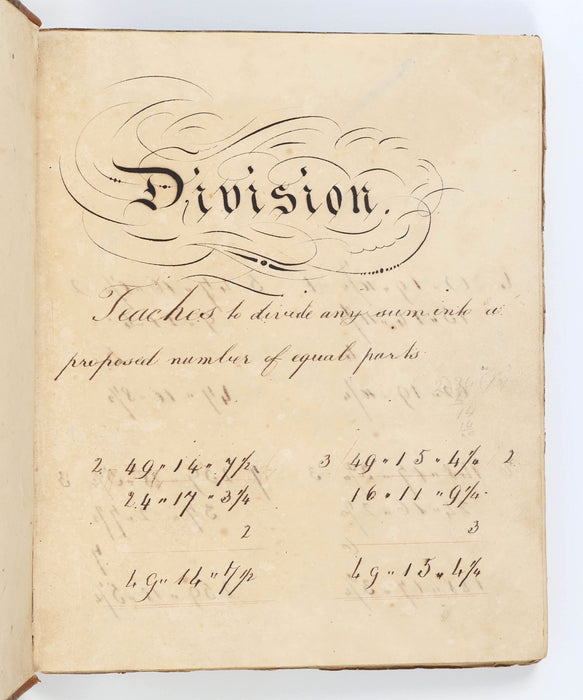 Division.
Teaches to divide any sum into a
proposed number of equal parts
2 49 " 14 " 7½ 3 49 " 15 " 4¼ 2
24 " 17 " 3¾ 16 " 11 " 9¼
2 3
49 " 14 " 7½ 49 " 15 " 4¼